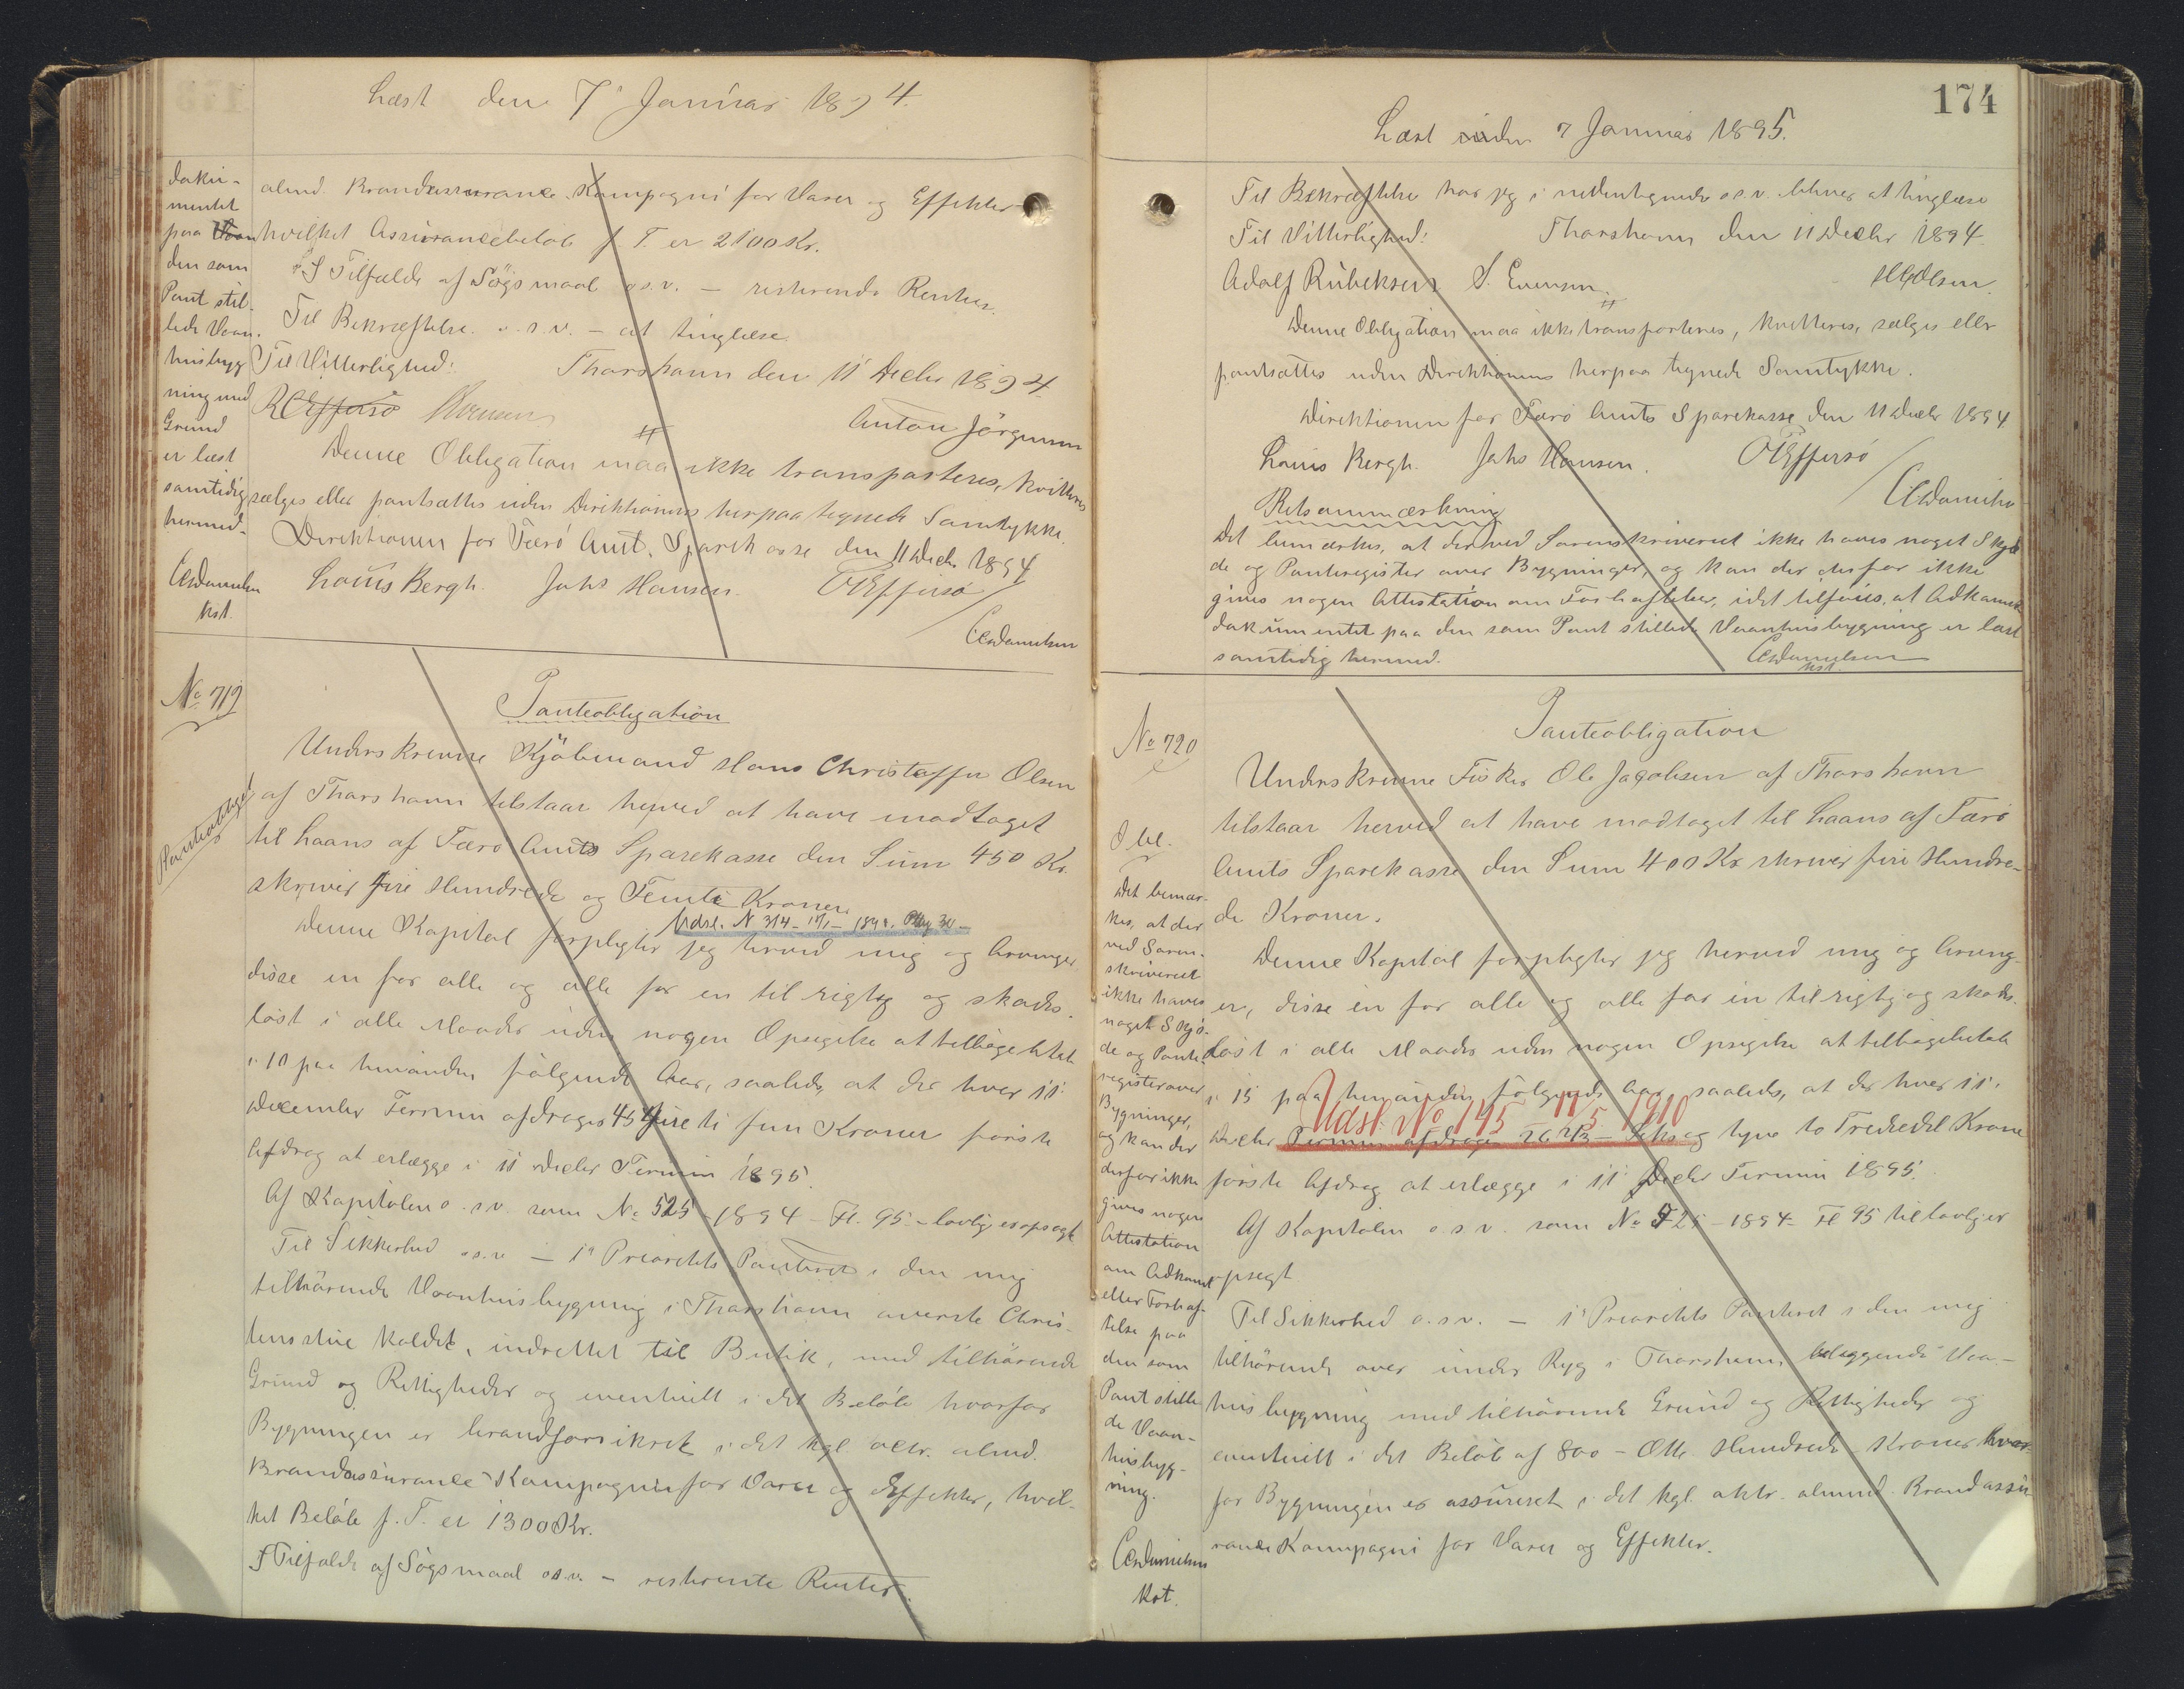 Læst den 7' Januar 1894.
doku-
mentet
paa
den som
Pant stil-
lede Vaan-
husbyg
ning med
Grund
er læst
samtidig
hermed.
CADanielsen
kst.
almd. Brandassurance Kompagni for Varer og Effekter
hvilket Assurancebeløb f. T. er 2100 Kr.
I Tilfælde af Søgsmaal o.s.v. – resterende Renter.
Til Bekræftelse o.s.v. – at tinglæse.
Til Vitterlighed: Thorshavn den 11' Decbr 1894
R C Effersø
Anton Jørgensen
Denne Obligation maa ikke transporteres, kvitteres
sælges eller pantsættes uden Direktionens herpaa tegnede Samtykke.
Direktionen for Færø Amts Sparekasse den 11 Decbr 1894
Louis Bergh. Johs Hansen. OEffersø
CADanielsen
No 719
Panteobligation
Underskrevne Kjøbmand Hans Christoffer Olsen
af Thorshavn tilstaar herved at have modtaget
til Laans af Færø Amts Sparekasse den Sum 450 Kr.
skriver fire Hundrede og Femti Kroner.
Denne Kapital forpligter jeg herved mig og Arvinger
disse en for alle og alle for en til rigtig og skades-
løst i alle Maader uden nogen Opsigelse at tilbagebetale
i 10 paa hinanden følgende Aar, saaledes at der hver 11'
December Termin afdrages 45 fireti fem Kroner første
Afdrag at erlægge i 11 Decbr Termin 1895.
Af Kapitalen o.s.v. som No 525 – 1894 – Fl. 95 – lovlig er opsagt
Til Sikkerhed o.s.v. – 1' Prioritets Panteret i den mig
tilhørende Vaanhusbygning i Thorshavn øverste Chris-
tensstue kaldet, indrettet til Butik, med tilhørende
Grund og Rettigheder og eventuelt i det Beløb hvorfor
Bygningen er brandforsikret i det kgl. octr. almd.
Brandassurance Kompagni for Varer og Effekter, hvil-
ket Beløb f. T. er 1300 Kr.
I Tilfælde af Søgsmaal o.s.v. – resterende Renter.
174
Læst den 7 Januar 1895.
Til Bekræftelse har jeg i nedentegnede o.s.v. bliver at tinglæse
Til Vitterlighed: Thorshavn den 11 Decbr 1894.
Adolf Rubeksen S. Evensen. HCOlsen.
Denne Obligation maa ikke transporteres, kvitteres, sælges eller
pantsættes uden Direktionens herpaa tegnede Samtykke.
Direktionen for Færø Amts Sparekasse den 11 Decbr 1894
Louis Bergh. Johs Hansen. OEffersø
CADanielsen
Retsanmærkning
Det bemærkes, at der ved Sorenskriveriet ikke haves noget Skjø
de og Panteregister over Bygninger, og kan der derfor ikke
gives nogen Attestation om Forhæftelser, idet tilføies, at Adkomst
dokumentet paa den som Pant stillede Vaanhusbygning er læst
samtidig hermed.
CADanielsen
kst.
No 720
Obl.
Det bemær-
kes, at der
ved Soren-
skriveriet
ikke haves
noget Skjø-
de og Pante-
register over
Bygninger,
og kan der
derfor ikke
gives nogen
Attestation
om Adkomst
eller Forhæf-
telse paa
den som
Pant stille
de Vaan-
husbyg-
ning.
CADanielsen
kst.
Panteobligation
Underskrevne Fisker Ole Jacobsen af Thorshavn
tilstaar herved at have modtaget til Laans af Færø
Amts Sparekasse den Sum 400 Kr skriver fire Hundre-
de Kroner.
Denne Kapital forpligter jeg herved mig og Arving-
er, disse en for alle og alle for en til rigtig og skades-
løst i alle Maader uden nogen Opsigelse at tilbagebetale
i 15 paa hinanden følgende Aar saaledes, at der hver 11'
Udsl No 145 17/5 1910
Decbr Termin afdrages 26 2/3 – Seks og tyve to Trediedel Krone
første Afdrag at erlægge i 11' Decbr Termin 1895.
Af Kapitalen o.s.v. som No 525 – 1894 – Fl 95 til lovlig er
opsagt
Til Sikkerhed o.s.v. – 1' Prioritets Panteret i den mig
tilhørende over under Ryg i Thorshavn beliggende Vaan-
husbygning med tilhørende Grund og Rettigheder og
eventuelt i det Beløb af 800 – Otte Hundrede Kroner hvor-
for Bygningen er assureret i det kgl. oktr. almind. Brandassu
rance Kompagni for Varer og Effekter.